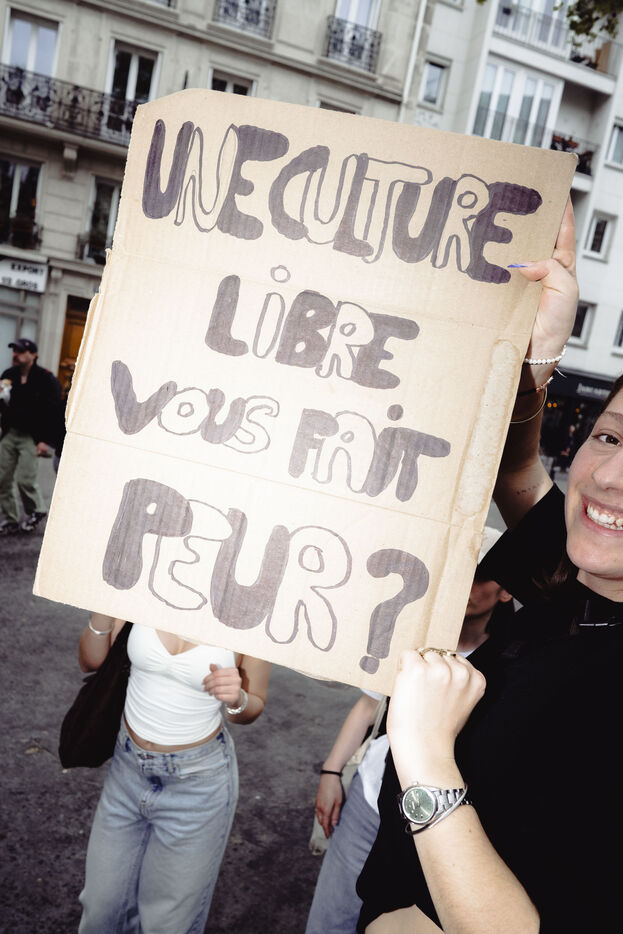 UNE CULTURE
LiBRE
VOUS FAiT
PEUR?
EXPORT